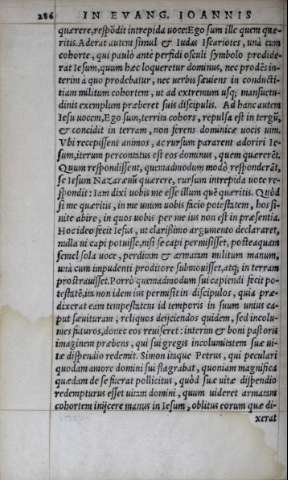 286 IN EVANG. IOANNIS
quærere, respōdit intrepida uoce: Ego sum ille quem quæ-
ritis. Aderat autem simul & Iudas Iscariotes, unà cum
cohorte, qui paulò ante perfidi osculi symbolo prodide-
rat Iesum, quum hæc loqueretur dominus, nec prodēs in-
terim à quo prodebatur, nec uerbis sæuiens in conducti-
tiam militum cohortem, ut ad extremum usq; mansuetu-
dinis exemplum præberet suis discipulis. Ad hanc autem
Iesu uocem, Ego sum, territa cohors, repulsa est in tergū,
& concidit in terram, non ferens dominicæ uocis uim.
Vbi recepissent animos, ac rursum pararent adoriri Ie-
sum, iterum percontatus est eos dominus, quem quærerēt.
Quum respondissent, quemadmodum modò responderāt,
se Iesum Nazarenū quærere, rursum intrepida uoce re-
spondit: Iam dixi uobis me esse illum quē quæritis. Quòd
si me quæritis, in me unum uobis facio potestatem, hos si-
nite abire, in quos uobis per me ius non est in præsentia.
Hoc ideo fecit Iesus, ut clarissimo argumento declararet,
nulla ui capi potuisse, nisi se capi permisisset, posteaquam
semel sola uoce, perditam & armatam militum manum,
unà cum impudenti proditore submouisset, atq; in terram
prostrauisset. Porrò quemadmodum sui capiendi fecit po-
testatē, ita non idem ius permisit in discipulos, quia præ-
dixerat eam tempestatem id temporis in suum unius ca-
put sæuituram, reliquos deijciendos quidem, sed incolu-
mes futuros, donec eos reuiseret: interim & boni pastoris
imaginem præbens, qui sui gregis incolumitatem suæ ui-
tæ dispendio redemit. Simon itaque Petrus, qui peculiari
quodam amore domini sui flagrabat, quoniam magnifica
quædam de se fuerat pollicitus, quòd suæ uitæ dispendio
redempturus esset uitam domini, quum uideret armatam
cohortem inijcere manus in Iesum, oblitus eorum quæ di-
xerat